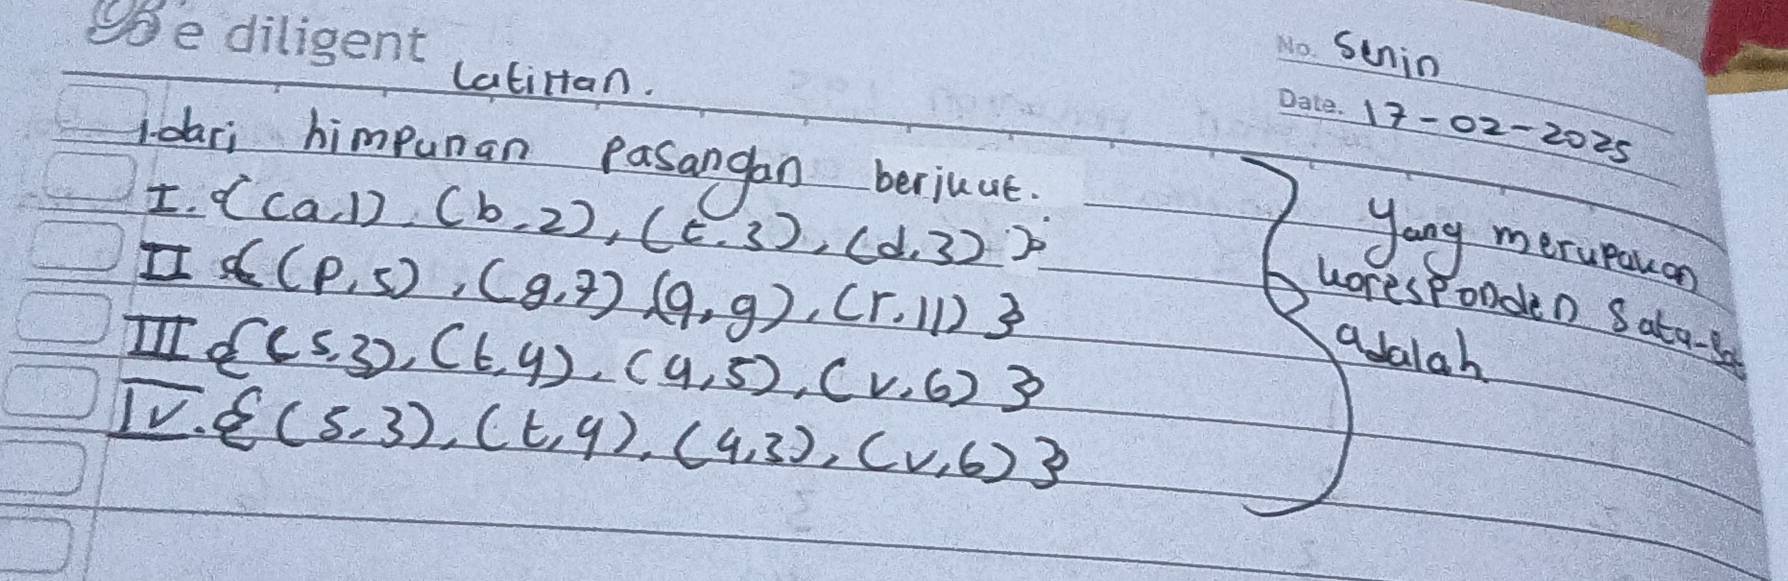 Be diligent
No. Senin
Latihan.
Date. 17-02-2025
1. dari himpunan pasangan berikut.
I. {(a,1), (b,2), (c,3), (d,3)}
II {(p,5), (q,7) (q,9), (r,11)}
III {(s,3), (t,4), (u,5), (v,6)}
IV. {(s,3), (t,4), (u,3), (v,6)}
yang merupakan
koresponden satu-sa
adalah